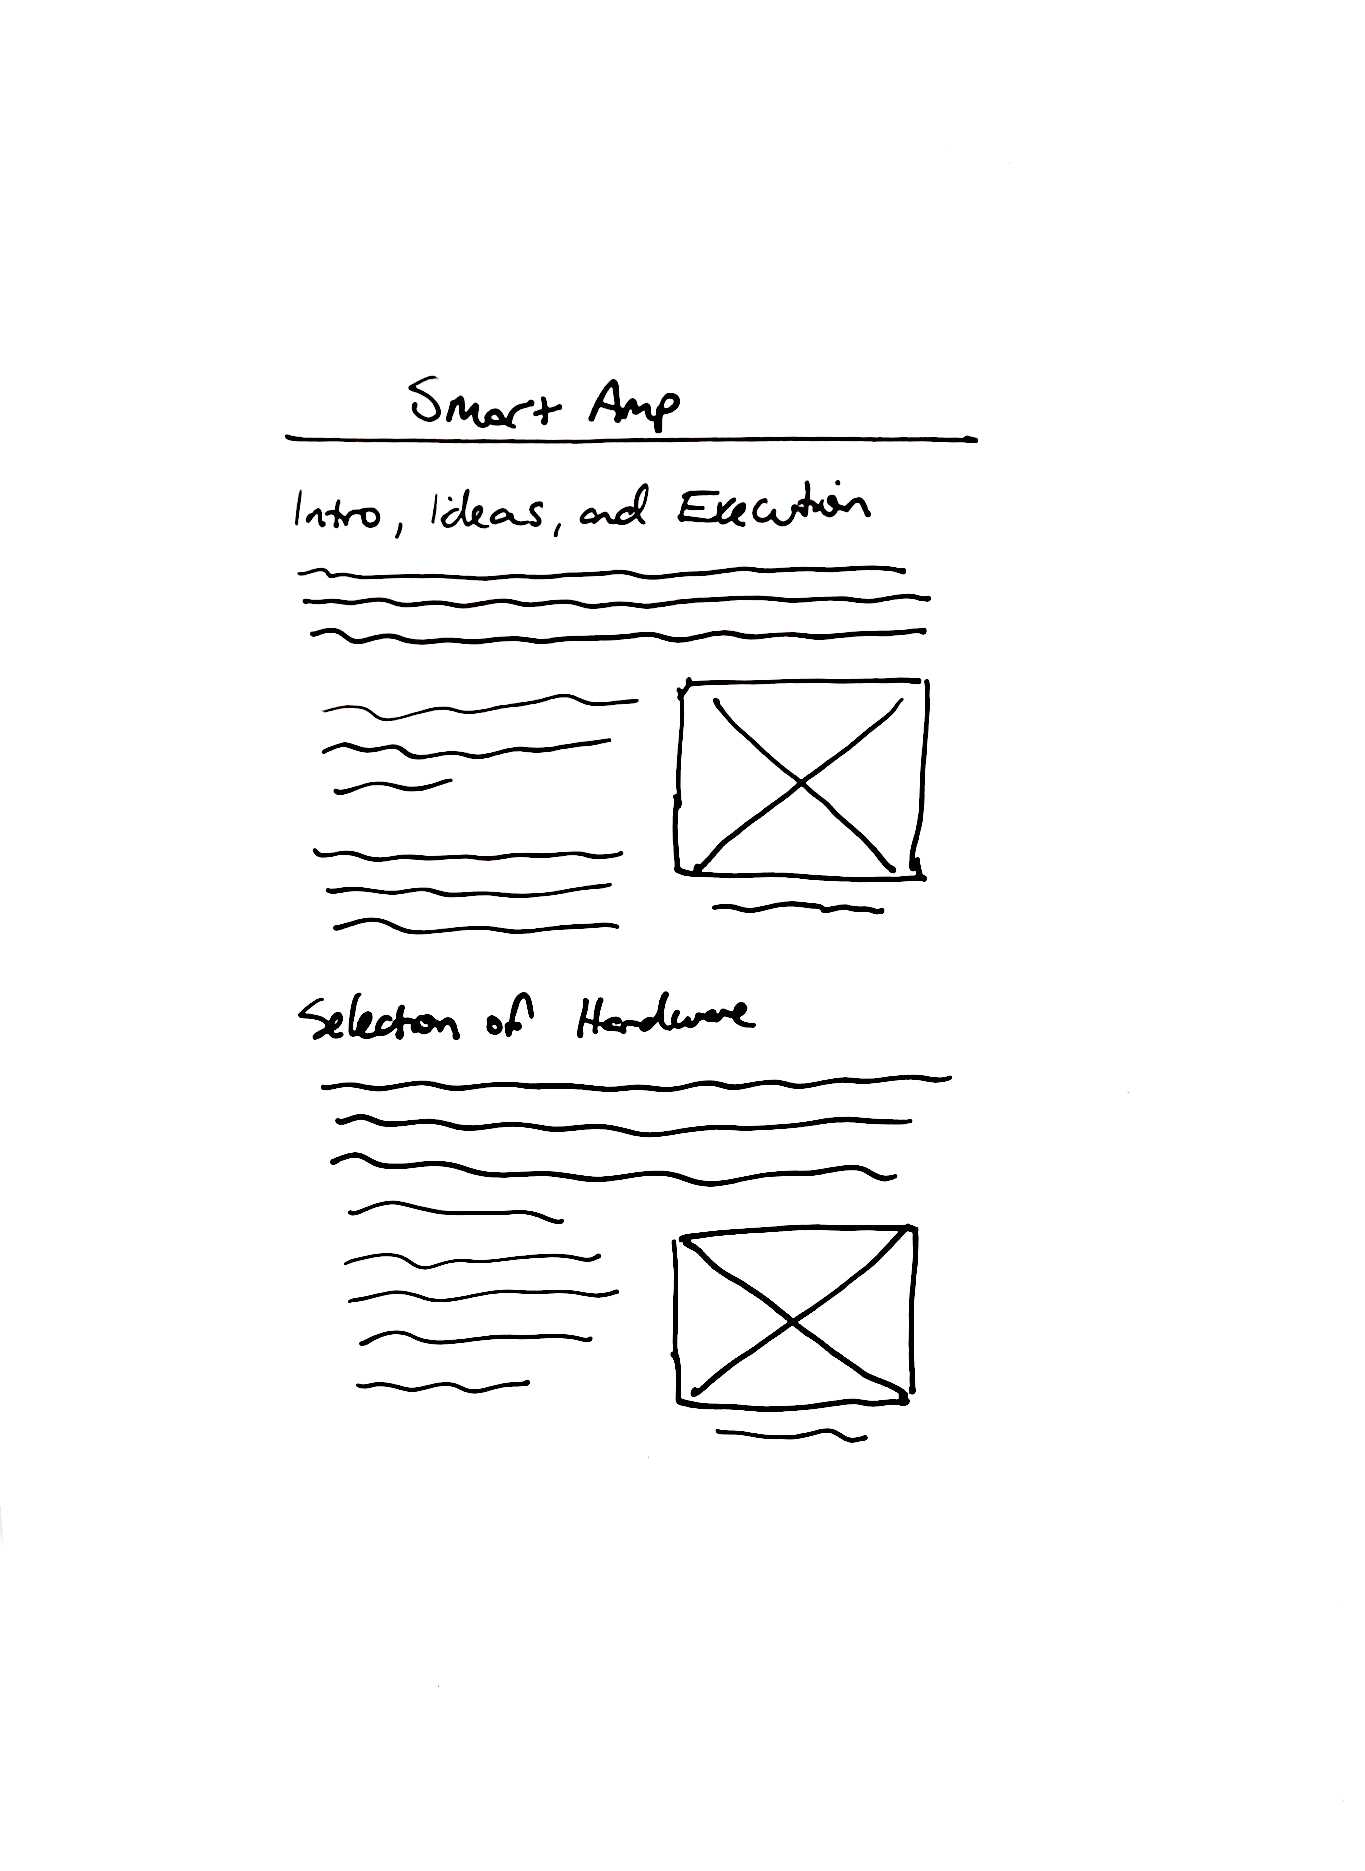 Smart Amp
Intro, Ideas, and Execution
Selection of Hardware